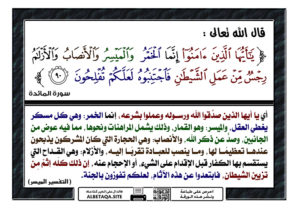 قال الله تعالى :
يَٰٓأَيُّهَا ٱلَّذِينَ ءَامَنُوٓاْ إِنَّمَا ٱلْخَمْرُ وَٱلْمَيْسِرُ وَٱلْأَنصَابُ وَٱلْأَزْلَٰمُ
رِجْسٌ مِّنْ عَمَلِ ٱلشَّيْطَٰنِ فَٱجْتَنِبُوهُ لَعَلَّكُمْ تُفْلِحُونَ ٩٠
سورة المائدة
أي يا أيها الذين صدَّقوا الله ورسوله وعملوا بشرعه، إنما الخمر: وهي كل مسكر
يغطي العقل، والميسر: وهو القمار، وذلك يشمل المراهنات ونحوها، مما فيه عوض من
الجانبين، وصدٌّ عن ذكر الله، والأنصاب: وهي الحجارة التي كان المشركون يذبحون
عندها تعظيمًا لها، وما ينصب للعبادة تقربًا إليه، والأزلام: وهي القداح التي
يستقسم بها الكفار قبل الإقدام على الشيء، أو الإحجام عنه، إن ذلك كله إثمٌ مِن
تزيين الشيطان، فابتعدوا عن هذه الآثام، لعلكم تفوزون بالجنة.
( التفسير الميسر )
ALBETAQA.SITE